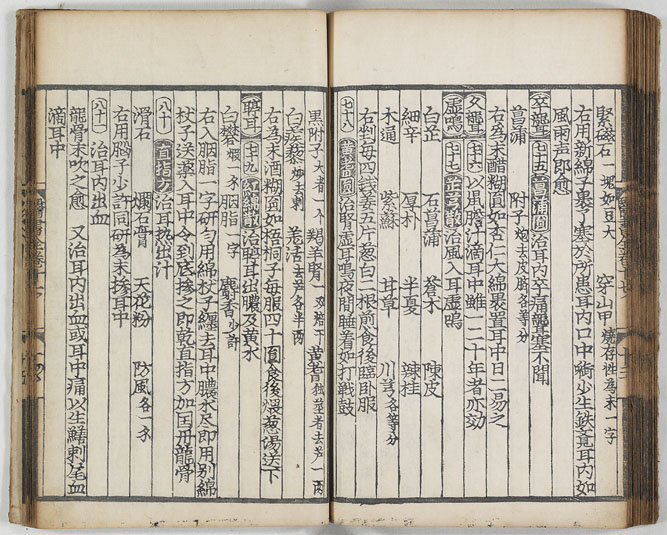 緊磁石一塊如豆大 穿山甲燒存性為末一字
右用新綿子裹了塞於所患耳內口中嚼少生鉄竟耳內如
風雨声即愈
卒聾 七五 菖蒲圓 治耳內卒痛聾塞不聞
菖蒲 附子炮去皮臍各等分
右為末醋糊圓如杏仁大綿裹置耳中日二易之
久聾 七六 以鼠膽汁滴耳中雖一二十年者亦効
虛鳴 七七 芷芎散 治風入耳虛鳴
白芷 石菖蒲 蒼术 陳皮
細辛 厚朴 半夏 辣桂
木通 紫蘇 甘草 川芎各等分
右剉每四錢姜五片葱白二根煎食後臨卧服
七十八 黃蓍圓 治腎虛耳鳴夜間睡着如打戰鼓
黑附子大者一个 羯羊腎一双焙干 黃蓍独莖者去芦一兩
白蒺藜炒去刺 羌活去芦各半兩
右為末酒糊圓如梧桐子每服四十圓食後煨葱湯送下
聤耳 七九 紅綿散 治聤耳出膿及黃水
白礬煅 胭脂一字 麝香少許
右入胭脂一字研勻用綿杖子纏去耳中膿水尽即用別綿
杖子送薬入耳中令到底摻之即乾直指方加丹龍骨
八十 直指方 治耳熱出汁
滑石 爛石膏 天花粉 防風各一
右用腦子少許同研為末摻耳中
八十一 治耳內出血
龍骨末吹之愈 又治耳內出血或耳中痛以生鱔剌尾血
滴耳中